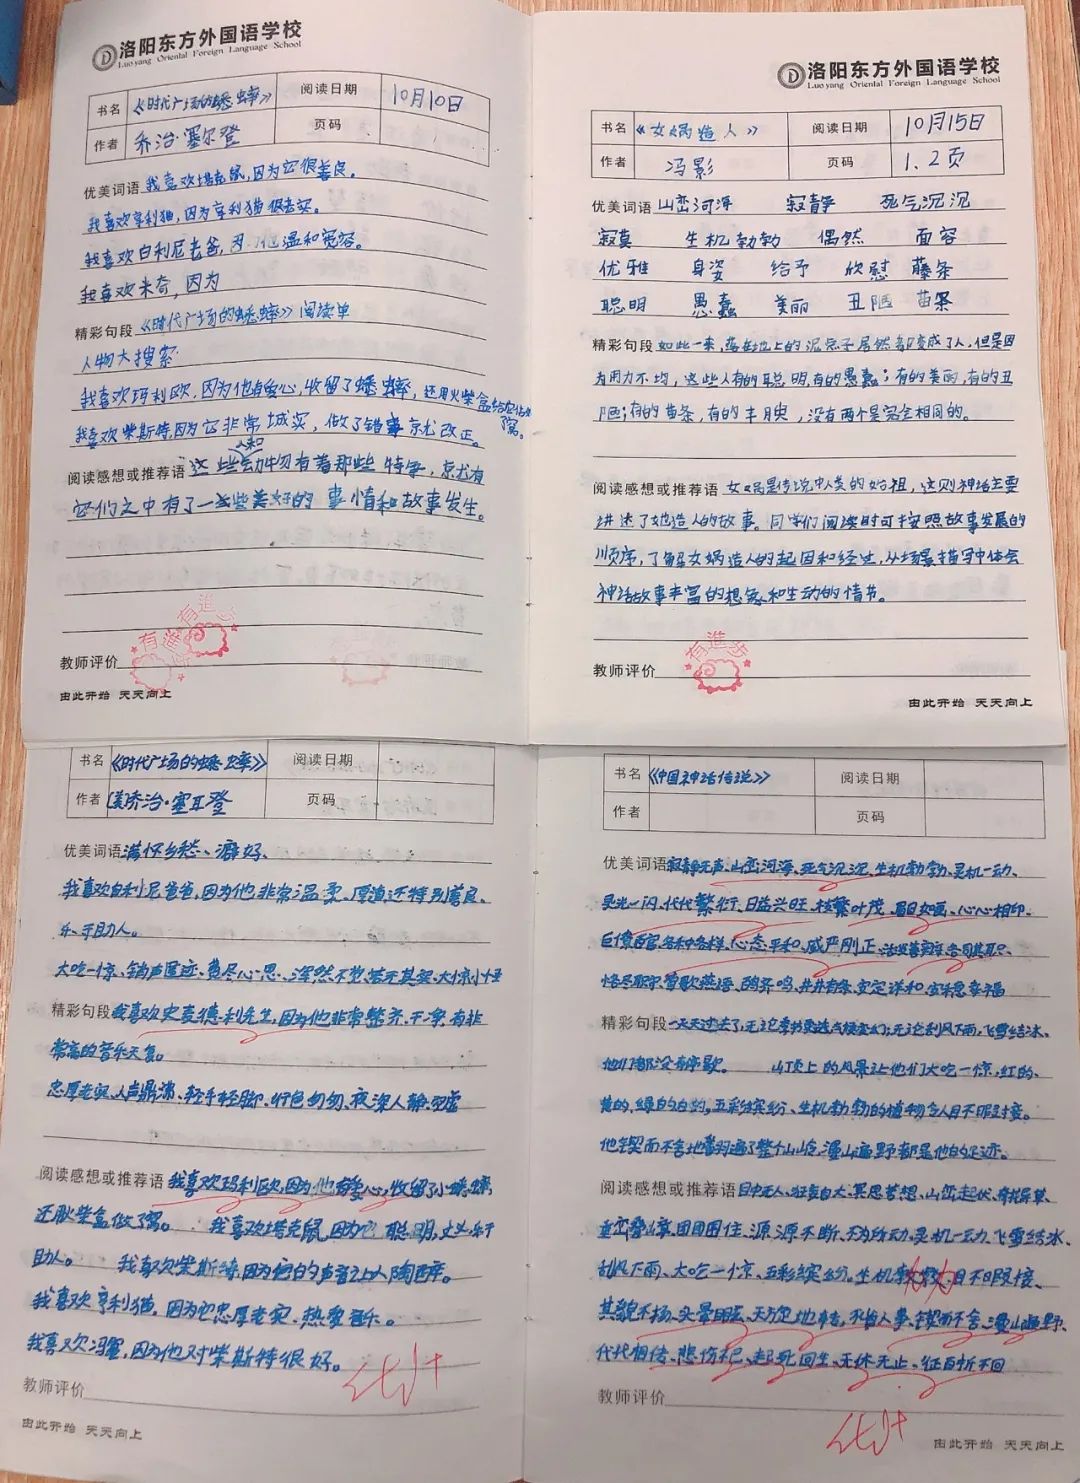 洛阳东方外国语学校
Luoyang Oriental Foreign Language School
书名 《时代广场的蟋蟀》 阅读日期 10月10日
作者 乔治·塞尔登 页码
优美词语 我喜欢塔克鼠,因为它很善良。
我喜欢亨利猫,因为亨利猫很老实。
我喜欢白利尼老爸,因为他温和宽容。
我喜欢米奇,因为
精彩句段《时代广场的蟋蟀》阅读单
人物大搜索
我喜欢玛利欧,因为他有爱心,收留了蟋蟀,还用火柴盒给它做了窝。
我喜欢柴斯特,因为它非常诚实,做了错事就改正。
阅读感想或推荐语 这些人和动物有着那些特点,就有
它们之中有了一些些美好的事情和故事发生。
有進步
有進步
教师评价
由此开始 天天向上
洛阳东方外国语学校
Luoyang Oriental Foreign Language School
书名 《女娲造人》 阅读日期 10月15日
作者 冯影 页码 1.2页
优美词语 山峦河海 寂静 死气沉沉
寂寞 生机勃勃 偶然 面容
优雅 身姿 给予 欣慰 藤条
聪明 愚蠢 美丽 丑陋 苗条
精彩句段 如此一来,落在地上的泥点子居然都变成了人,但是因
为用力不均,这些人有的聪明,有的愚蠢;有的美丽,有的丑
陋;有的苗条,有的丰腴,没有两个是完全相同的。
阅读感想或推荐语 女娲是传说中人类的始祖,这则神话主要
讲述了她造人的故事。同学们阅读时可按照故事发展的
顺序,了解女娲造人的起因和经过,从场景描写中体会
神话故事丰富的想象和生动的情节。
有進步
教师评价
由此开始 天天向上
书名 《时代广场的蟋蟀》 阅读日期
作者 [美]乔治·塞耳登 页码
优美词语 满怀乡愁、癖好、
我喜欢白利尼爸爸,因为他非常温柔、厚道还特别善良、
乐于助人。
大吃一惊、销声匿迹、费尽心思、浑然不觉、若无其事、大惊小怪
精彩句段 我喜欢史麦德利先生,因为他非常整齐、干净,有非
常高的音乐天负。
忠厚老实、人声鼎沸、轻手轻脚、行色匆匆、夜深人静、空虚
阅读感想或推荐语 我喜欢玛利欧,因为他有爱心,收留了小蟋蟀,
还用火柴盒做了窝。 我喜欢塔克鼠,因为它聪明,又乐于
助人。 我喜欢柴斯特,因为它的声音让人陶醉。
我喜欢亨利猫,因为它忠厚老实、热爱音乐。
我喜欢冯赛,因为他对柴斯特很好。
教师评价
由此开始 天天向上
书名 《中国神话传说》 阅读日期
作者 页码
优美词语 寂静无声、山峦河海、死气沉沉、生机勃勃、灵机一动、
灵光一闪、代代繁衍、日益兴旺、枝繁叶茂、眉目如画、心心相印、
各种各样、心态平和、威严刚正、各司其职、
恪尽职守、莺歌燕语、鹊齐鸣、井井有条、安定详和、幸福
精彩句段 一天天过去了,无论季节更迭气候变幻;无论刮风下雨,飞雪结冰、
他们都没有停歇。 山顶上的风景让他们大吃一惊,红的、
黄的,绿的白的,五彩缤纷、生机勃勃的植物令人目不暇接。
他锲而不舍地翻遍了整个山岭,漫山遍野都是他的足迹。
阅读感想或推荐语 目中无人、狂妄自大、冥思苦想、山峦起伏、奇花异草、
重峦叠嶂、团团围住、源源不断、无为所动、灵机一动、飞雪结冰、
刮风下雨、大吃一惊、五彩缤纷、生机勃勃、目不暇接、
其貌不扬、头晕眼花、不省人事、锲而不舍、漫山遍野、
代代相传、悲伤不已、起死回生、无休无止、征百折不回
教师评价
由此开始 天天向上